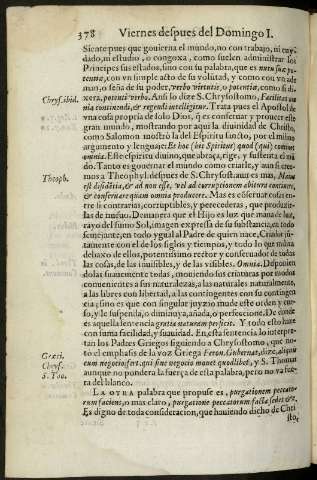 378 Viernes despues del Domingo I.
Siente pues que gouierna el mundo, no con trabajo, ni cuy-
dado, ni estudio, o congoxa, como suelen administrar los
Principes sus estados, sino con su palabra, que es
potentia, con vn simple acto de su volũtad, y como con vn
man, o seña de su poder, verbo virtutis, o potentia, como si di-
xera, potenti verbo. Ansi lo dize S. Chrysostomo,
Chrys. ibid.
nia continendi, & regendi intelligitur. Trata pues el Apostol de
vna cosa propria de solo Dios, q̃ es conseruar y proueer este
gran mundo, mostrando por aqui la diuinidad de Christo,
como Salomon mostro la del Espiritu sancto, por el mismo
argumento y lenguaje: Et hoc (hic Spiritus) quod (qui) continet
omnia. Este espiritu diuino, que abraça, rige, y sustenta el mũ
do. Tanto es gouernar el mundo como criarle, y aun
mos a Theophyl. despues de S. Chrysost. aun es mas,
Theoph.
& ad non esse, vel ad corruptionem abitura continere,
& conseruare quàm omnia producere. Mas es cõseruar cosas en-
tre si contrarias, corruptibles, y perecederas, que produzir-
las de nueuo. Demanera que el Hijo es luz que mana de luz,
rayo del sumo Sol, imagen expressa de su substancia, en todo
semejante, en todo ygual al Padre de quien nace, Criador jũ-
tamente con el de los siglos y tiempos, y todo lo que
debaxo de ellos, potentissimo rector y conseruador de todas
las cosas, de las inuisibles, y de las visibles. Omnia. Disponien
dolas suauemente todas, mouiendo sus criaturas por modos
conuenientes a sus naturalezas, a las naturales naturalmente,
a las libres con libertad, a las contingentes con su contingen
cia; sino es que con singular juyzio mude este orden y cur-
so, y le suspenda, o diminuya, añada, o perfeccione. De donde
es aquella sentencia gratia naturam perficit. Y todo esto haze
con suma facilidad, y suauidad. En esta sentencia lo interpre-
tan los Padres Griegos siguiendo a Chrysostomo, que no-
to el emphasis de la voz Griega Feron. Gubernat, dize,
Græci.
Chrys.
S. Tho.
cum negocio fert, qui sine negocio mouet quodlibet, y S. Thomas
aunque no pondera la fuerça de esta palabra, pero no va fue-
ra del blanco.
LA OTRA palabra que propuse es, purgationem peccato-
rum faciens, o mas claro, purgatione peccatorum facta sedet &c.
Es digno de toda consideracion, que hauiendo dicho de Chri
sto,